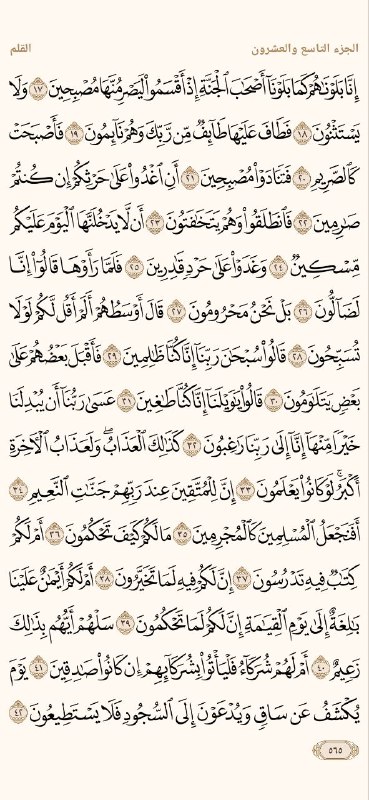 الجزء التاسع والعشرون
القلم
إِنَّا بَلَوْنَٰهُمْ كَمَا بَلَوْنَآ أَصْحَٰبَ ٱلْجَنَّةِ إِذْ أَقْسَمُوا۟ لَيَصْرِمُنَّهَا مُصْبِحِينَ ١٧ وَلَا
يَسْتَثْنُونَ ١٨ فَطَافَ عَلَيْهَا طَآئِفٌ مِّن رَّبِّكَ وَهُمْ نَآئِمُونَ ١٩ فَأَصْبَحَتْ
كَٱلصَّرِيمِ ٢٠ فَتَنَادَوْا۟ مُصْبِحِينَ ٢١ أَنِ ٱغْدُوا۟ عَلَىٰ حَرْثِكُمْ إِن كُنتُمْ
صَٰرِمِينَ ٢٢ فَٱنطَلَقُوا۟ وَهُمْ يَتَخَٰفَتُونَ ٢٣ أَن لَّا يَدْخُلَنَّهَا ٱلْيَوْمَ عَلَيْكُم
مِّسْكِينٌ ٢٤ وَغَدَوْا۟ عَلَىٰ حَرْدٍ قَٰدِرِينَ ٢٥ فَلَمَّا رَأَوْهَا قَالُوٓا۟ إِنَّا
لَضَآلُّونَ ٢٦ بَلْ نَحْنُ مَحْرُومُونَ ٢٧ قَالَ أَوْسَطُهُمْ أَلَمْ أَقُل لَّكُمْ لَوْلَا
تُسَبِّحُونَ ٢٨ قَالُوا۟ سُبْحَٰنَ رَبِّنَآ إِنَّا كُنَّا ظَٰلِمِينَ ٢٩ فَأَقْبَلَ بَعْضُهُمْ عَلَىٰ
بَعْضٍ يَتَلَٰوَمُونَ ٣٠ قَالُوا۟ يَٰوَيْلَنَآ إِنَّا كُنَّا طَٰغِينَ ٣١ عَسَىٰ رَبُّنَآ أَن يُبْدِلَنَا
خَيْرًا مِّنْهَآ إِنَّآ إِلَىٰ رَبِّنَا رَٰغِبُونَ ٣٢ كَذَٰلِكَ ٱلْعَذَابُ ۖ وَلَعَذَابُ ٱلْـَٔاخِرَةِ
أَكْبَرُ ۚ لَوْ كَانُوا۟ يَعْلَمُونَ ٣٣ إِنَّ لِلْمُتَّقِينَ عِندَ رَبِّهِمْ جَنَّٰتِ ٱلنَّعِيمِ ٣٤
أَفَنَجْعَلُ ٱلْمُسْلِمِينَ كَٱلْمُجْرِمِينَ ٣٥ مَا لَكُمْ كَيْفَ تَحْكُمُونَ ٣٦ أَمْ لَكُمْ
كِتَٰبٌ فِيهِ تَدْرُسُونَ ٣٧ إِنَّ لَكُمْ فِيهِ لَمَا تَخَيَّرُونَ ٣٨ أَمْ لَكُمْ أَيْمَٰنٌ عَلَيْنَا
بَٰلِغَةٌ إِلَىٰ يَوْمِ ٱلْقِيَٰمَةِ إِنَّ لَكُمْ لَمَا تَحْكُمُونَ ٣٩ سَلْهُمْ أَيُّهُم بِذَٰلِكَ
زَعِيمٌ ٤٠ أَمْ لَهُمْ شُرَكَآءُ فَلْيَأْتُوا۟ بِشُرَكَآئِهِمْ إِن كَانُوا۟ صَٰدِقِينَ ٤١ يَوْمَ
يُكْشَفُ عَن سَاقٍ وَيُدْعَوْنَ إِلَى ٱلسُّجُودِ فَلَا يَسْتَطِيعُونَ ٤٢
٥٦٥